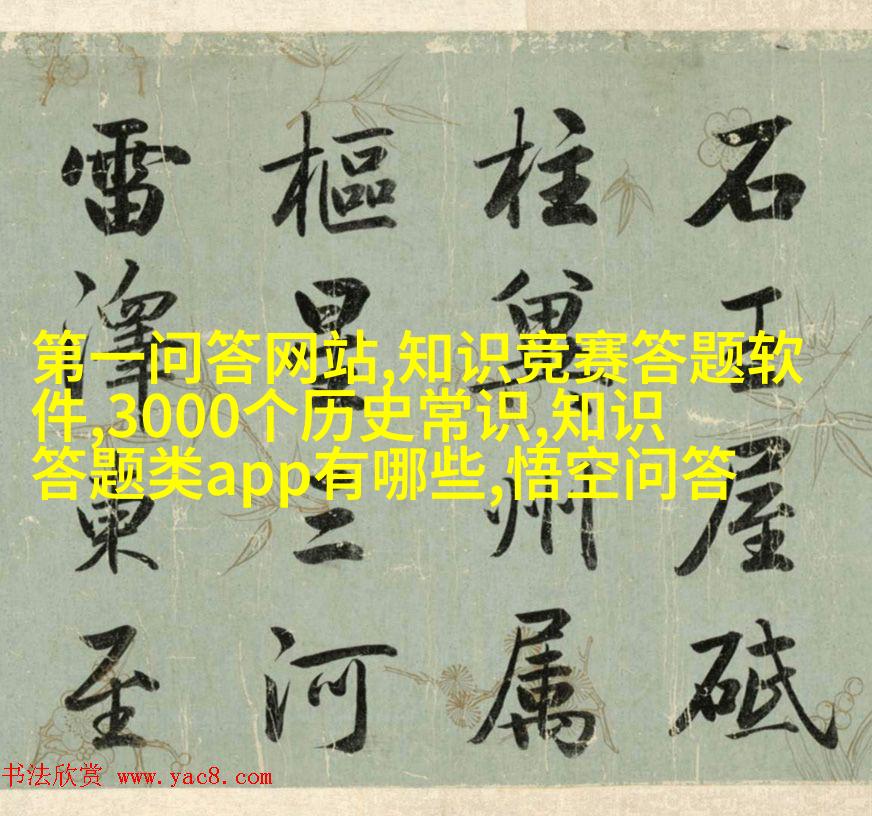 石工屋砥
柱冀州属
樞星三河
雷澤東至
第一问答网站,知识竞赛答题软
件,3000个历史常识,知识
答题类app有哪些,悟空问答
书法欣赏 www.yac8.com